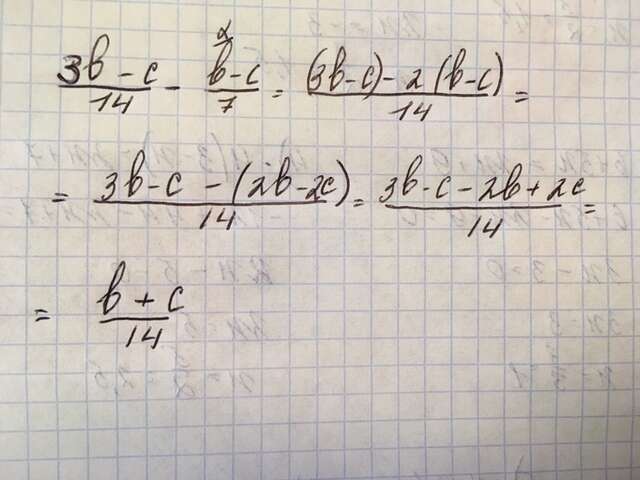 (3b-c)/14 - (b-c)/7 ² = ((3b-c)-2(b-c))/14 =
= (3b-c-(2b-2c))/14 = (3b-c-2b+2c)/14 =
= (b+c)/14